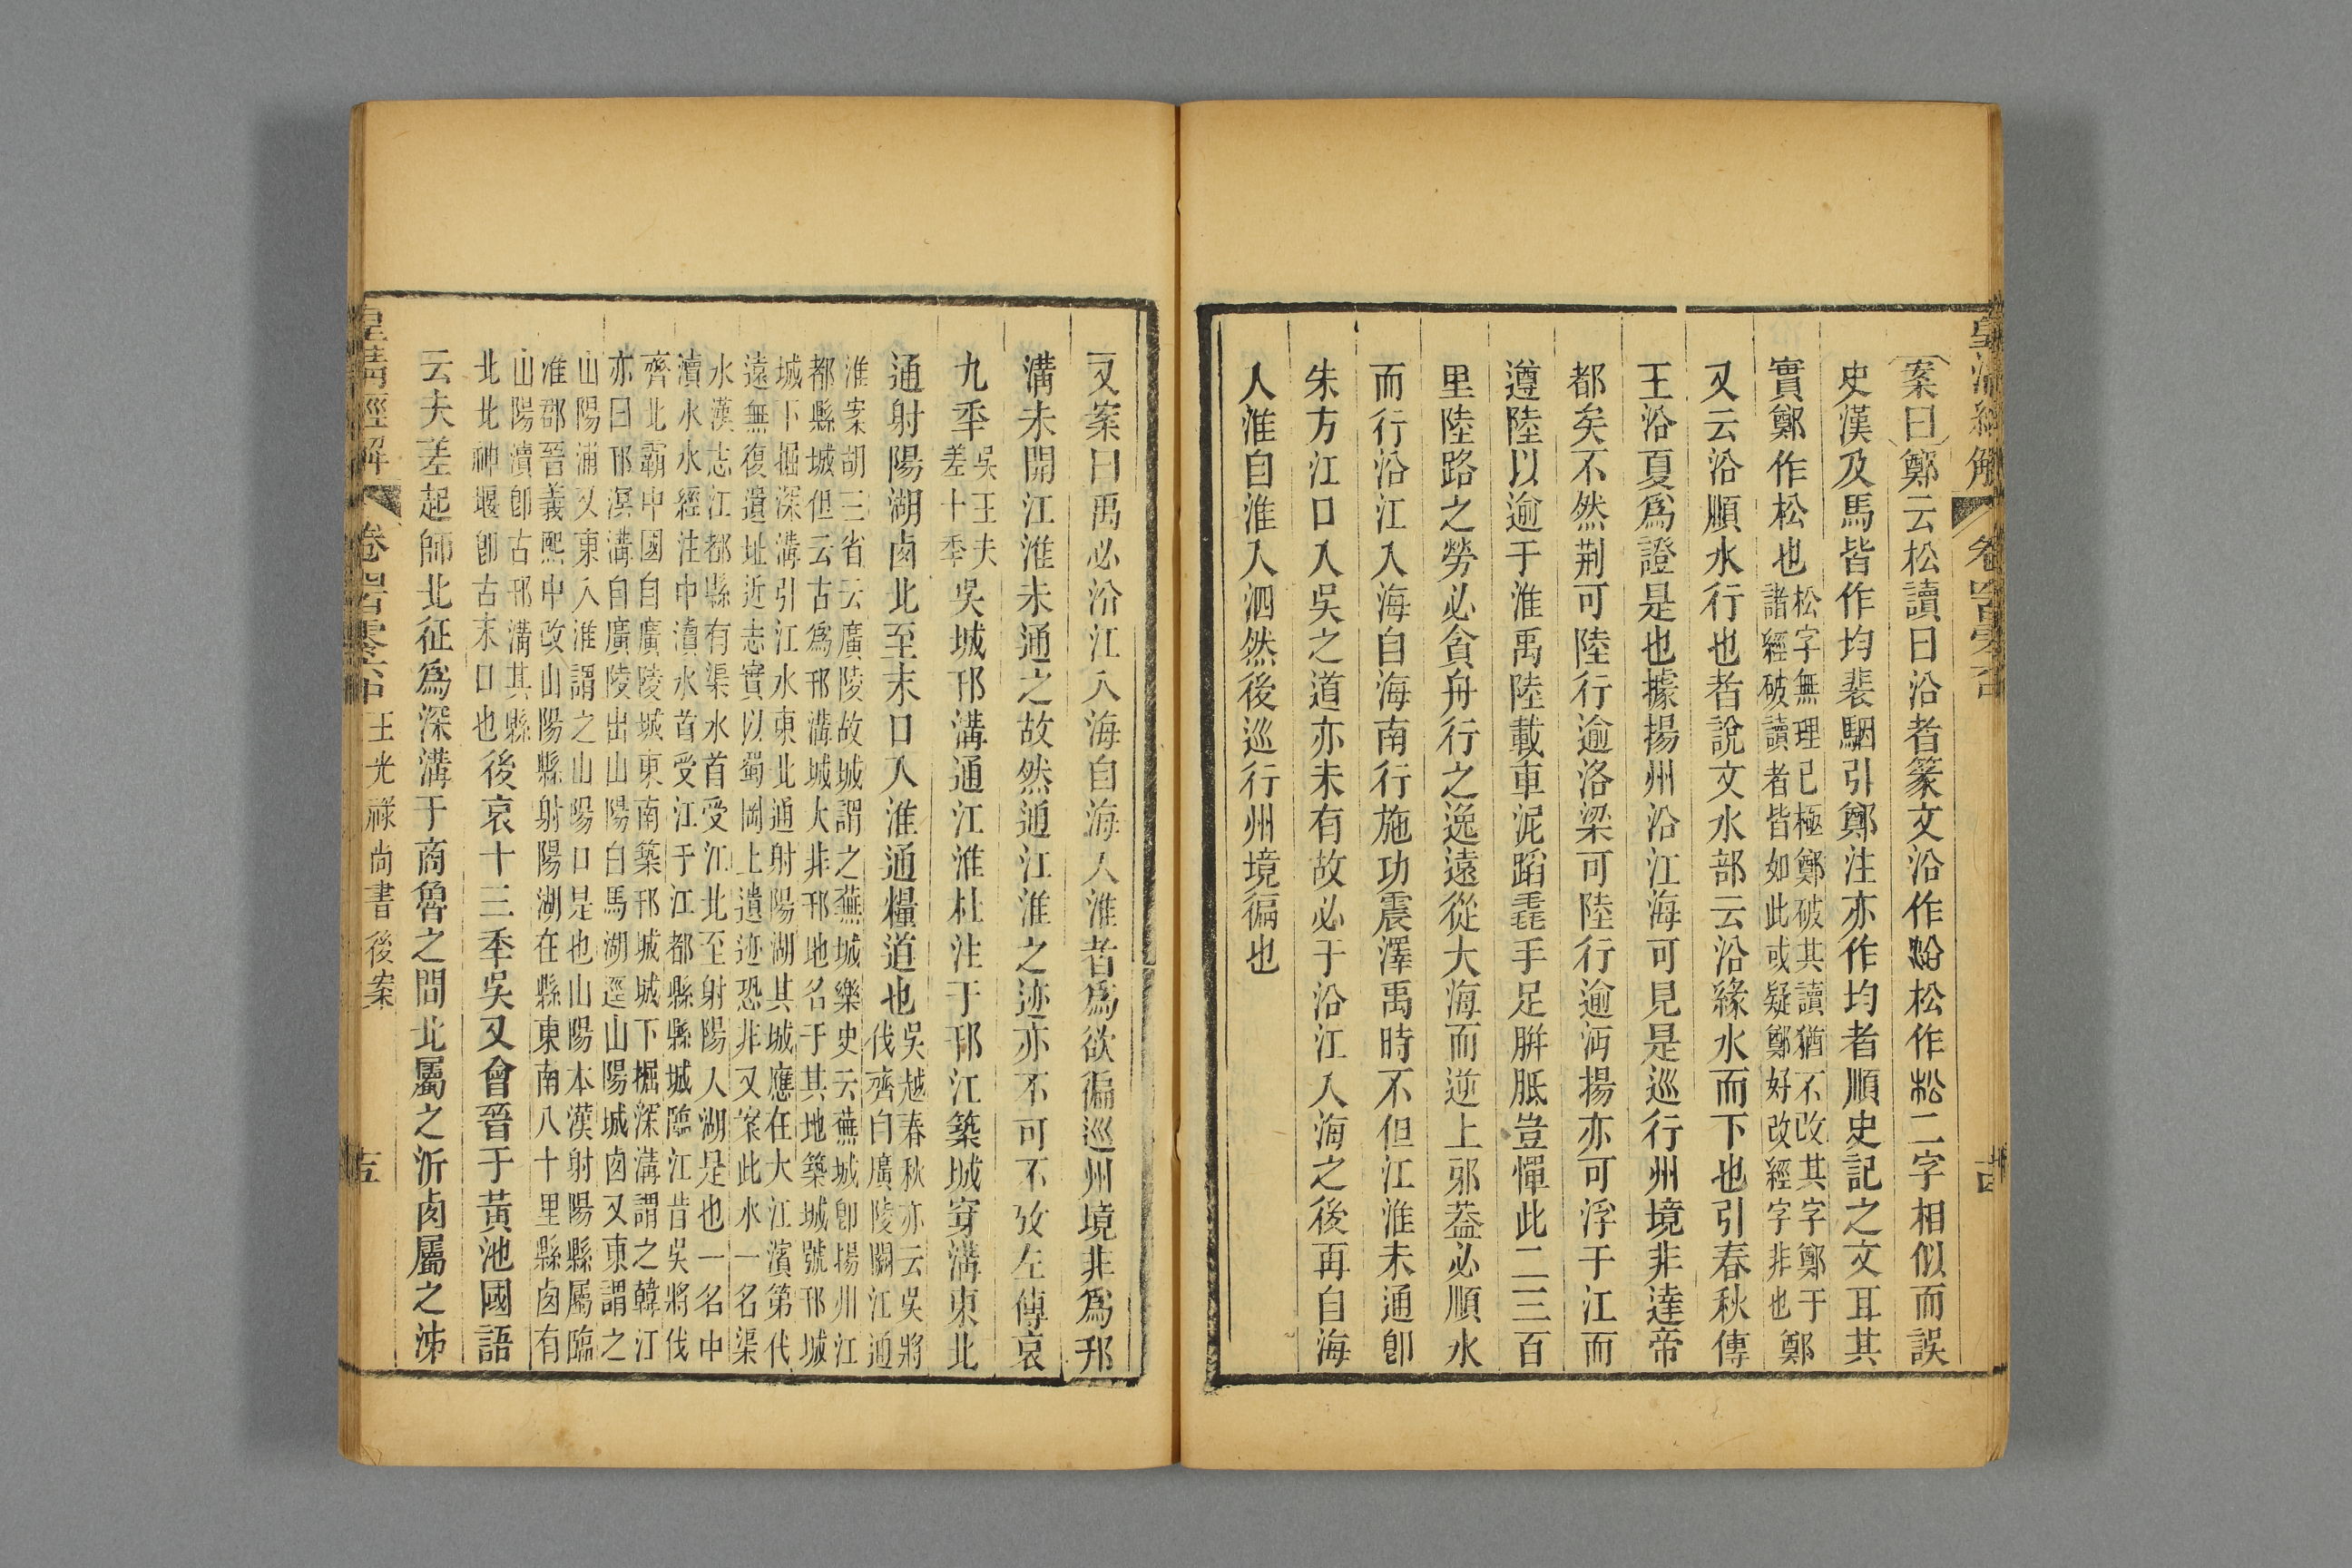 皇清經解
案曰鄭云松讀曰沿者篆文沿作㳂松作㮤二字相似而誤
史漢及馬皆作均裴駰引鄭注亦作均者順史記之文耳其
實鄭作松也松字無理已極鄭破其讀猶不改其字鄭于
諸經破讀者皆如此或疑鄭好改經字非也鄭
又云沿順水行也者說文水部云沿緣水而下也引春秋傳
王沿夏爲證是也據揚州沿江海可見是巡行州境非達帝
都矣不然荆可陸行逾洛梁可陸行逾沔揚亦可浮于江而
遵陸以逾于淮禹陸載車泥蹈毳手足胼胝豈憚此二三百
里陸路之勞必貪舟行之逸遠從大海而逆上邪葢必順水
而行沿江入海自海南行施功震澤禹時不但江淮未通卽
朱方江口入吳之道亦未有故必于沿江入海之後再自海
入淮自淮入泗然後巡行州境徧也
又案曰禹必沿江入海自海入淮者爲欲徧巡州境非爲邗
溝未開江淮未通之故然通江淮之迹亦不可不攷左傳哀
九秊吳王夫
差十秊吳城邗溝通江淮杜注于邗江築城穿溝東北
通射陽湖鹵北至末口入淮通糧道也吳越春秋亦云吳將
伐齊曰廣陵闕江通
淮案胡三省云廣陵故城謂之蕪城樂史云蕪城卽揚州江
都縣城但云古爲邗溝城大非邗地名于其地築城號邗城
城下掘深溝引江水東北通射陽湖其城應在大江濱第代
遠無復遺址近志實以蜀岡上遺迹恐非又案此水一名渠
水漢志江都縣有渠水首受江北至射陽入湖是也一名中
瀆水水經注中瀆水首受江于江都縣縣城臨江昔吳將伐
齊北霸中國自廣陵城東南築邗城城下掘深溝謂之韓江
亦曰邗溟溝自廣陵出山陽白馬湖逕山陽城鹵又東謂之
山陽浦又東入淮謂之山陽口是也山陽本漢射陽縣屬臨
淮郡晉義熙中改山陽縣射陽湖在縣東南八十里縣鹵有
山陽瀆卽古邗溝其縣
北北神堰卽古末口也後哀十三秊吳又會晉于黃池國語
云夫差起師北征爲深溝于商魯之間北屬之沂鹵屬之泲
皇清經解
王光祿尚書後案